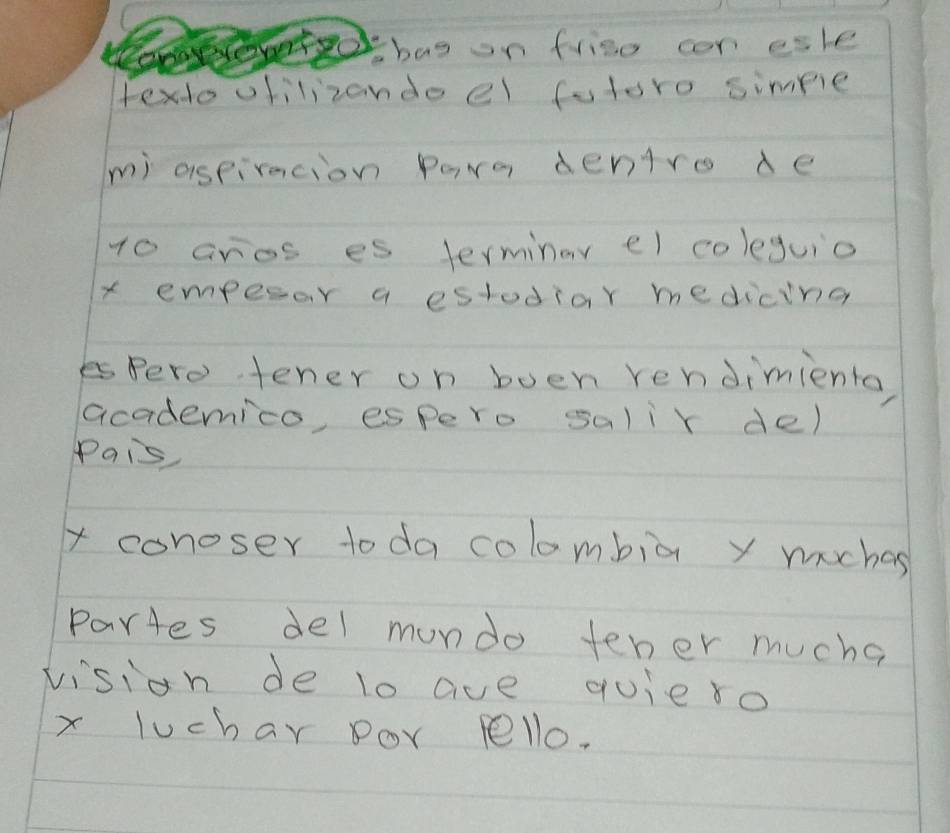 Compromiso: has un friso con este
texto utilizando el futuro simple
mi aspiracion para dentro de
10 años es terminar el coleguio
y empesar a estudiar medicina
espero tener un buen rendimiento,
academico, espero salir del
pais,
y conoser toda colombia y muchas
partes del mundo tener mucha
vision de lo que quiero
y luchar por ello.